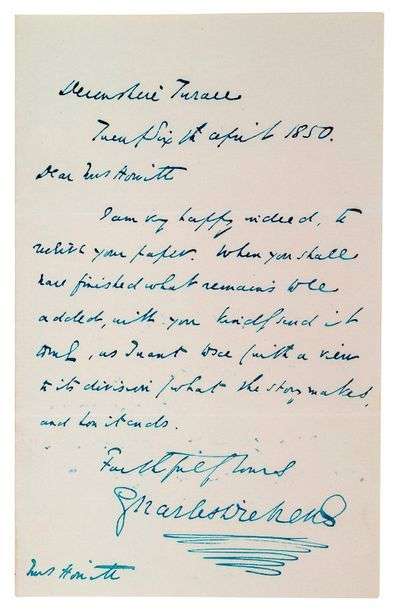 Devonshire Terrace
Twenty Sixth April 1850.
Dear Mrs Howitt
I am very happy indeed, to
receive your paper. When you shall
have finished what remains to be
added, will you kindly send it
to me, as I want to see (with a view
to its division) what the story makes,
and how it ends.
Faithfully Yours
Charles Dickens
Mrs Howitt